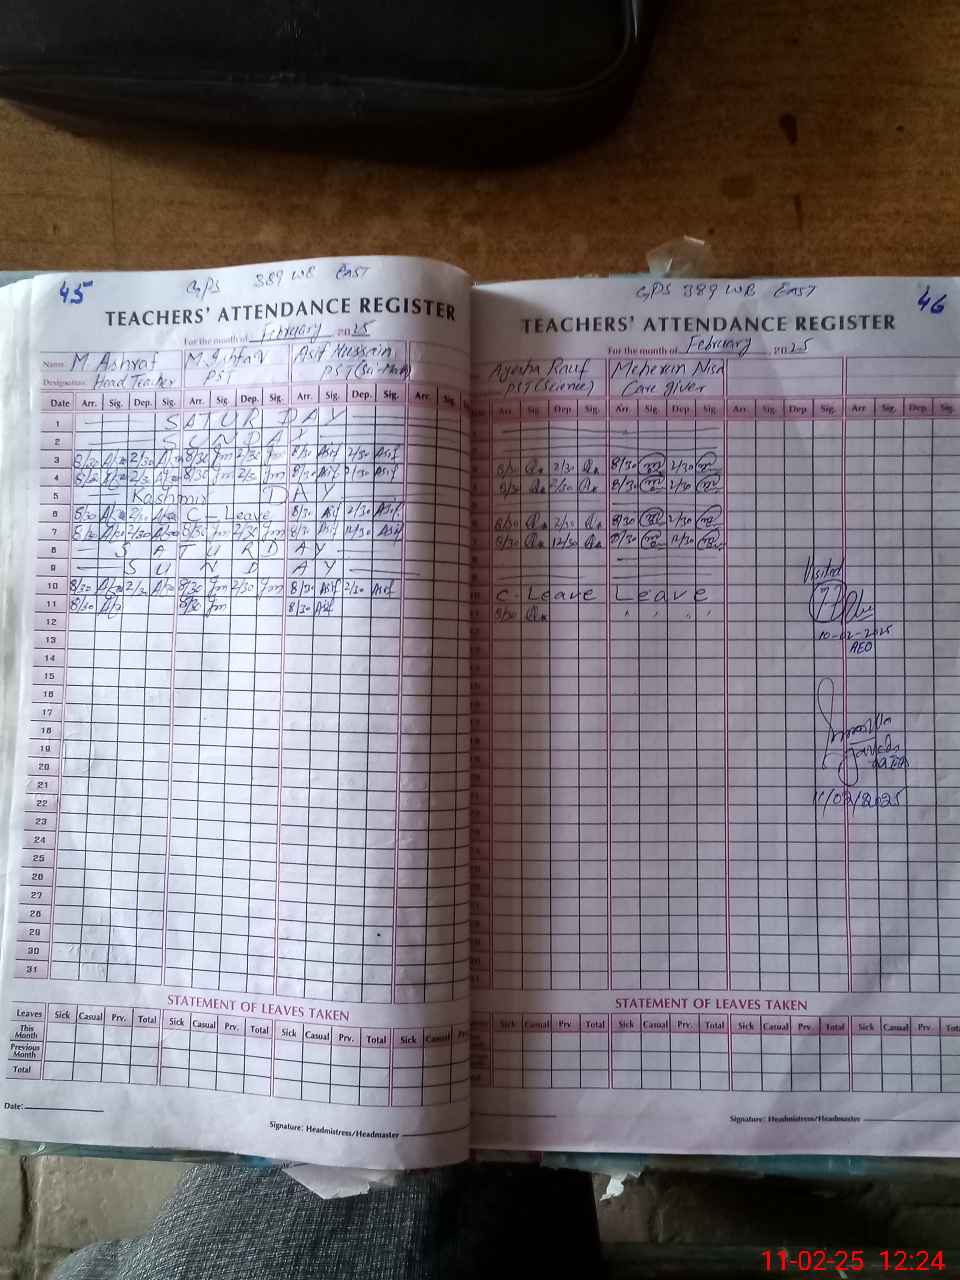 45
GPS 389 WB EAST
TEACHERS' ATTENDANCE REGISTER
For the month of February 2025
Name M Ashraf M Ishfaq Asif Hussain
Designation Head Teacher PST PST (Sci-Math)
Date Arr. Sig. Dep. Sig. Arr. Sig. Dep. Sig. Arr. Sig. Dep. Sig. Arr. Sig.
1 SATURDAY
2 SUNDAY
3 8/30 2/30 8/30 2/30 8/30 Asif 2/30 Asif
4 8/30 2/30 8/30 2/30 8/30 Asif 2/30 Asif
5 Kashmir DAY
6 8/30 2/30 C-Leave 8/30 Asif 2/30 Asif
7 8/30 12/30 8/30 12/30 8/30 Asif 12/30 Asif
8 SATURDAY
9 SUNDAY
10 8/30 2/30 8/30 2/30 8/30 Asif 2/30 Asif
11 8/30 8/30 8/30 Asif
12
13
14
15
16
17
18
19
20
21
22
23
24
25
26
27
28
29
30
31
STATEMENT OF LEAVES TAKEN
Leaves Sick Casual Prv. Total Sick Casual Prv. Total Sick Casual Prv. Total Sick Casual
This Month
Previous Month
Total
Date:
Signature: Headmistress/Headmaster
46
GPS 389 WB EAST
TEACHERS' ATTENDANCE REGISTER
For the month of February 2025
Ayesha Rauf Meherun Nisa
PST (Science) Care giver
Arr. Sig. Dep. Sig. Arr. Sig. Dep. Sig. Arr. Sig. Dep. Sig. Arr Sig. Dep. Sig.
8/30 2/30 8/30 2/30
8/30 2/30 8/30 2/30
8/30 2/30 8/30 2/30
8/30 12/30 8/30 12/30
C-Leave Leave
8/30 " " " "
Visited
10-02-2025
AEO
11/02/2025
STATEMENT OF LEAVES TAKEN
Sick Casual Prv. Total Sick Casual Prv. Total Sick Casual Prv. Total Sick Casual Prv. Total
Signature: Headmistress/Headmaster
11-02-25 12:24